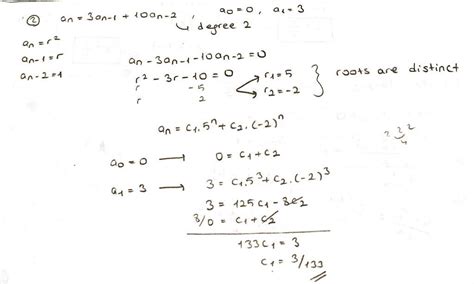 ② an = 3an-1 + 10an-2 , a0=0, a1=3
↳ degree 2
an = r²
an-1 = r
an-2 = 1
an - 3an-1 - 10an-2 = 0
r² - 3r - 10 = 0
r -5
r 2
r1 = 5
r2 = -2
} roots are distinct
an = c1.5ⁿ + c2.(-2)ⁿ
a0 = 0 → 0 = c1 + c2
a1 = 3 → 3 = c1.5³ + c2.(-2)³
3 = 125c1 - 8c2
8/0 = c1 + c2
133c1 = 3
c1 = 3/133